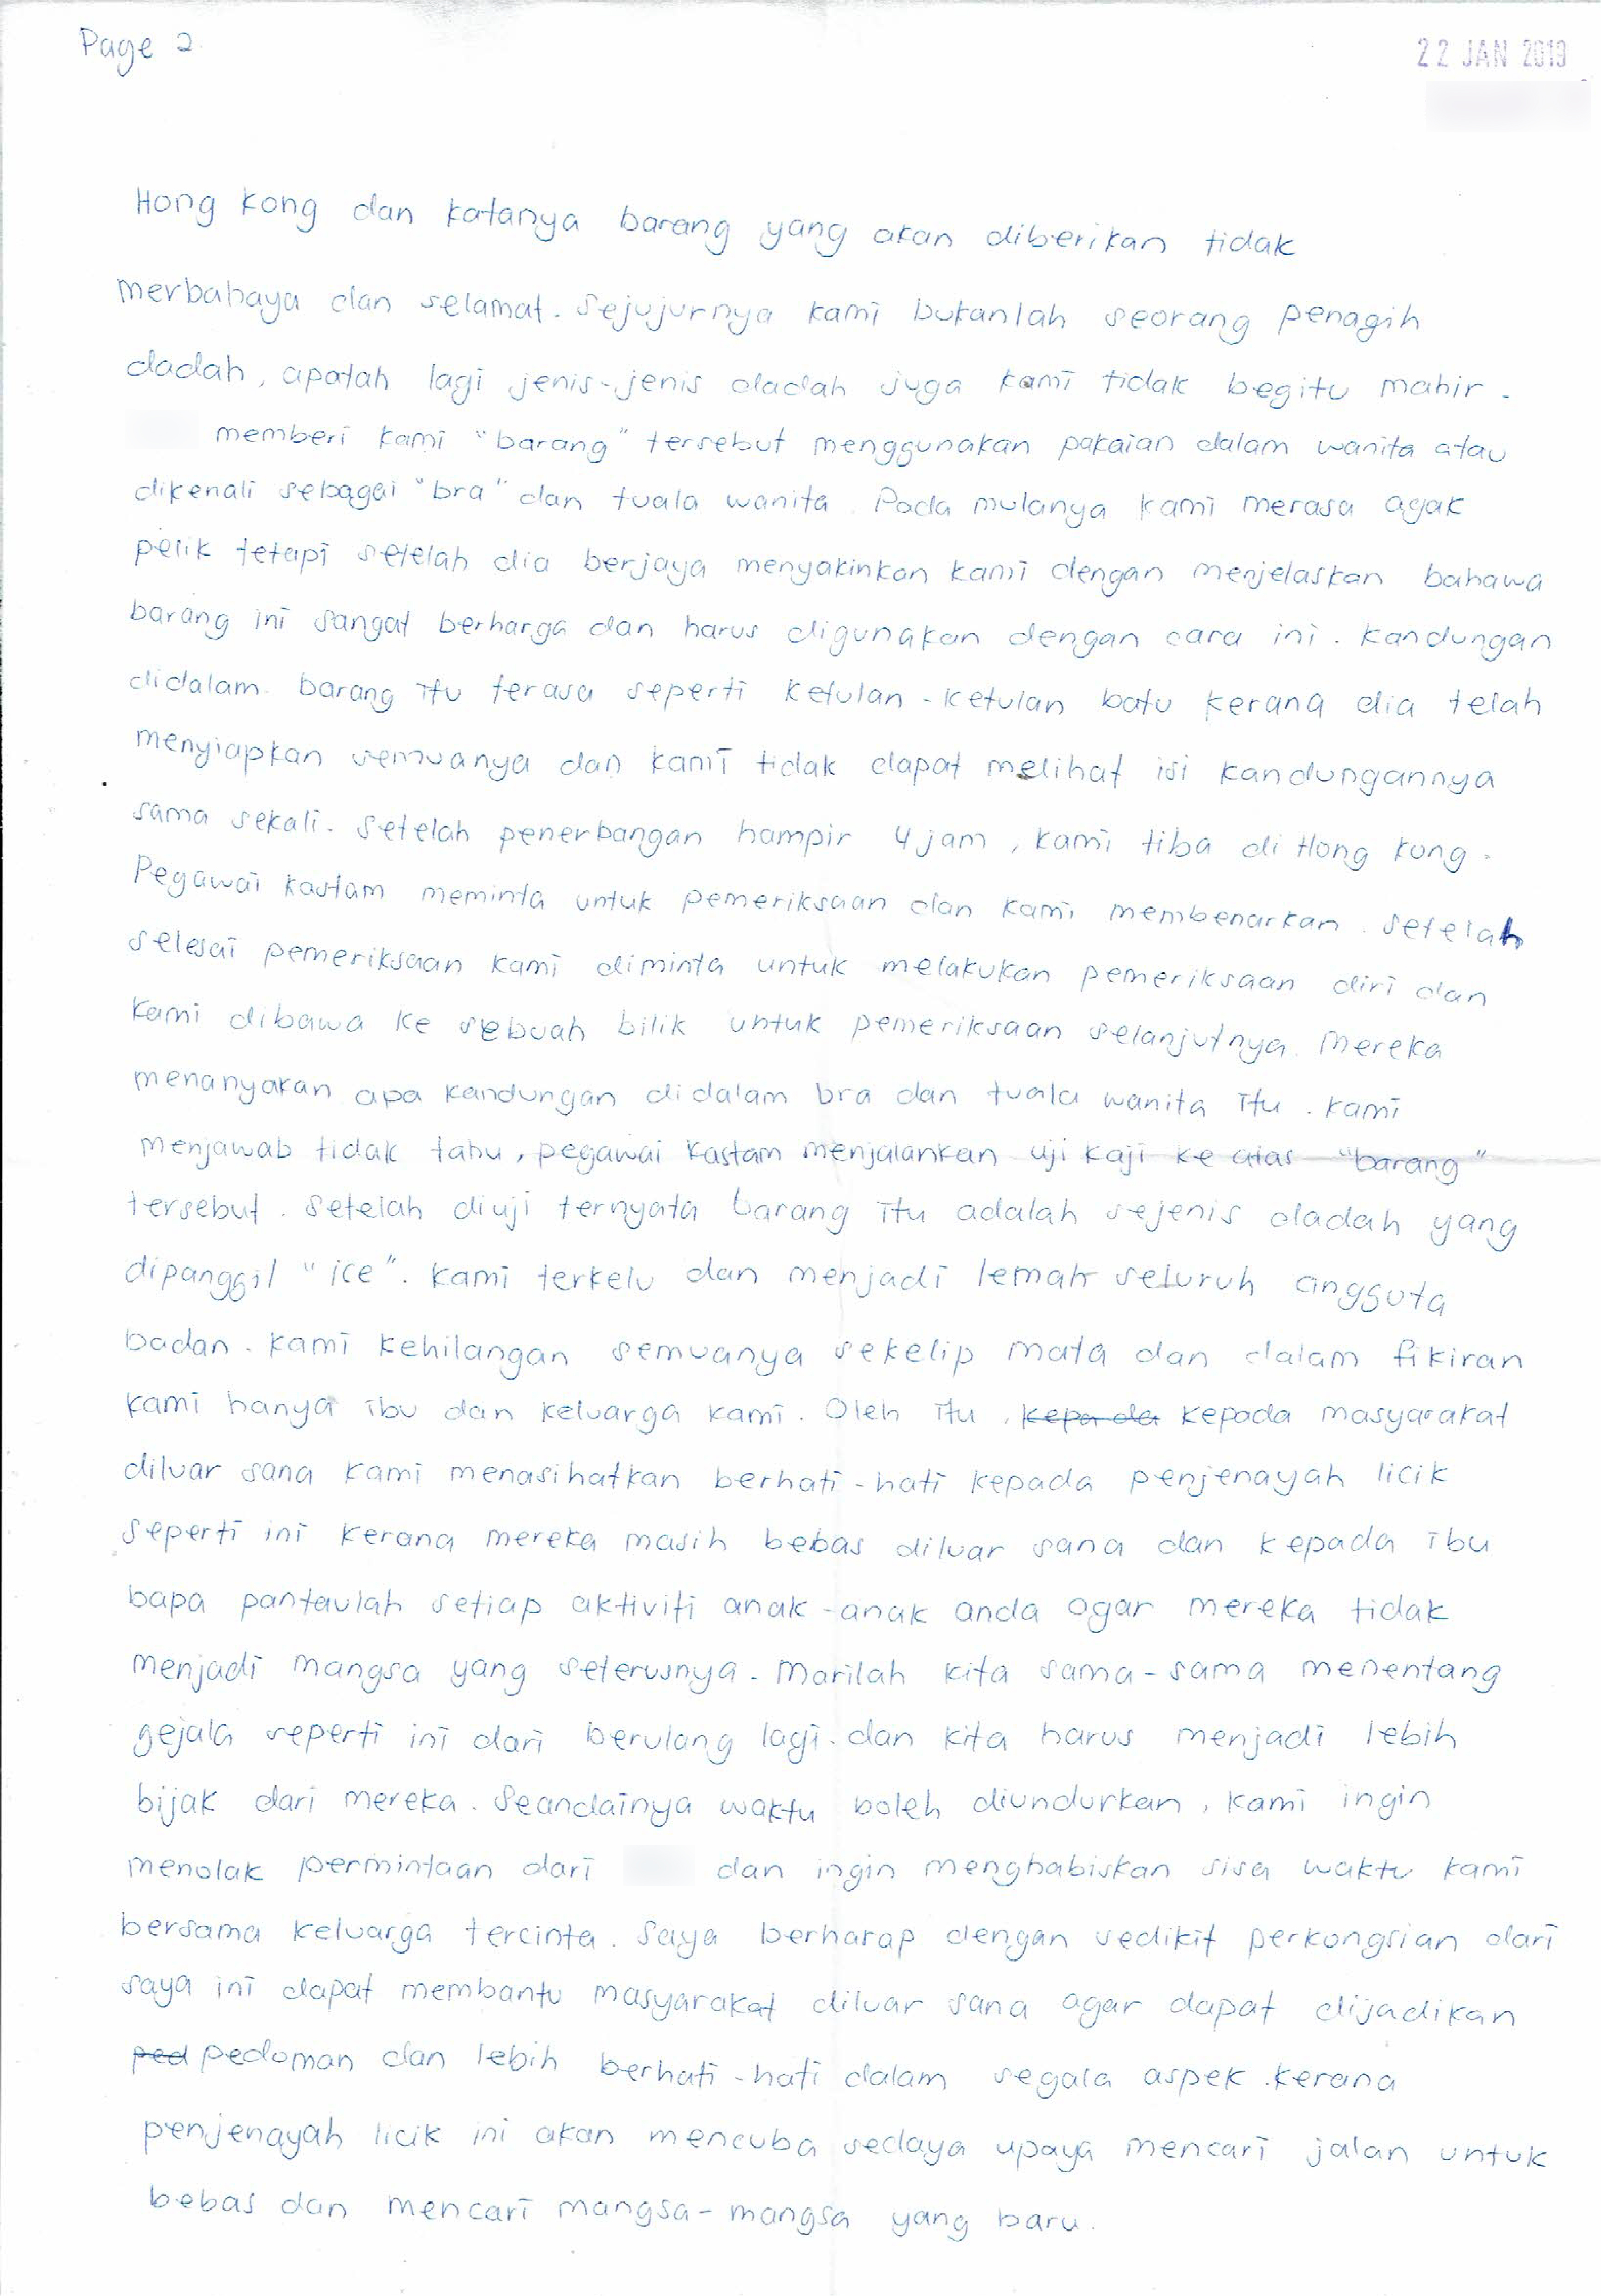 Page 2.
22 JAN 2019
Hong Kong dan katanya barang yang akan diberikan tidak
merbahaya dan selamat. Sejujurnya kami bukanlah seorang penagih
dadah, apatah lagi jenis-jenis dadah juga kami tidak begitu mahir.
memberi kami "barang" tersebut menggunakan pakaian dalam wanita atau
dikenali sebagai "bra" dan tuala wanita. Pada mulanya kami merasa agak
pelik tetapi setelah dia berjaya menyakinkan kami dengan menjelaskan bahawa
barang ini sangat berharga dan harus digunakan dengan cara ini. Kandungan
didalam barang itu terasa seperti ketulan-ketulan batu kerana dia telah
menyiapkan semuanya dan kami tidak dapat melihat isi kandungannya
sama sekali. Setelah penerbangan hampir 4 jam, kami tiba di Hong Kong.
Pegawai kastam meminta untuk pemeriksaan dan kami membenarkan. Setelah
selesai pemeriksaan kami diminta untuk melakukan pemeriksaan diri dan
kami dibawa ke sebuah bilik untuk pemeriksaan selanjutnya. Mereka
menanyakan apa kandungan didalam bra dan tuala wanita itu. Kami
menjawab tidak tahu, pegawai kastam menjalankan uji kaji ke atas "barang"
tersebut. Setelah diuji ternyata barang itu adalah sejenis dadah yang
dipanggil "ice". Kami terkelu dan menjadi lemah seluruh anggota
badan. Kami kehilangan semuanya sekelip mata dan dalam fikiran
kami hanya ibu dan keluarga kami. Oleh itu, kepada kepada masyarakat
diluar sana kami menasihatkan berhati-hati kepada penjenayah licik
seperti ini kerana mereka masih bebas diluar sana dan kepada ibu
bapa pantaulah setiap aktiviti anak-anak anda agar mereka tidak
menjadi mangsa yang seterusnya. Marilah kita sama-sama menentang
gejala seperti ini dari berulang lagi. dan kita harus menjadi lebih
bijak dari mereka. Seandainya waktu boleh diundurkan, kami ingin
menolak permintaan dari dan ingin menghabiskan sisa waktu kami
bersama keluarga tercinta. Saya berharap dengan sedikit perkongsian dari
saya ini dapat membantu masyarakat diluar sana agar dapat dijadikan
ped pedoman dan lebih berhati-hati dalam segala aspek. Kerana
penjenayah licik ini akan mencuba sedaya upaya mencari jalan untuk
bebas dan mencari mangsa-mangsa yang baru.